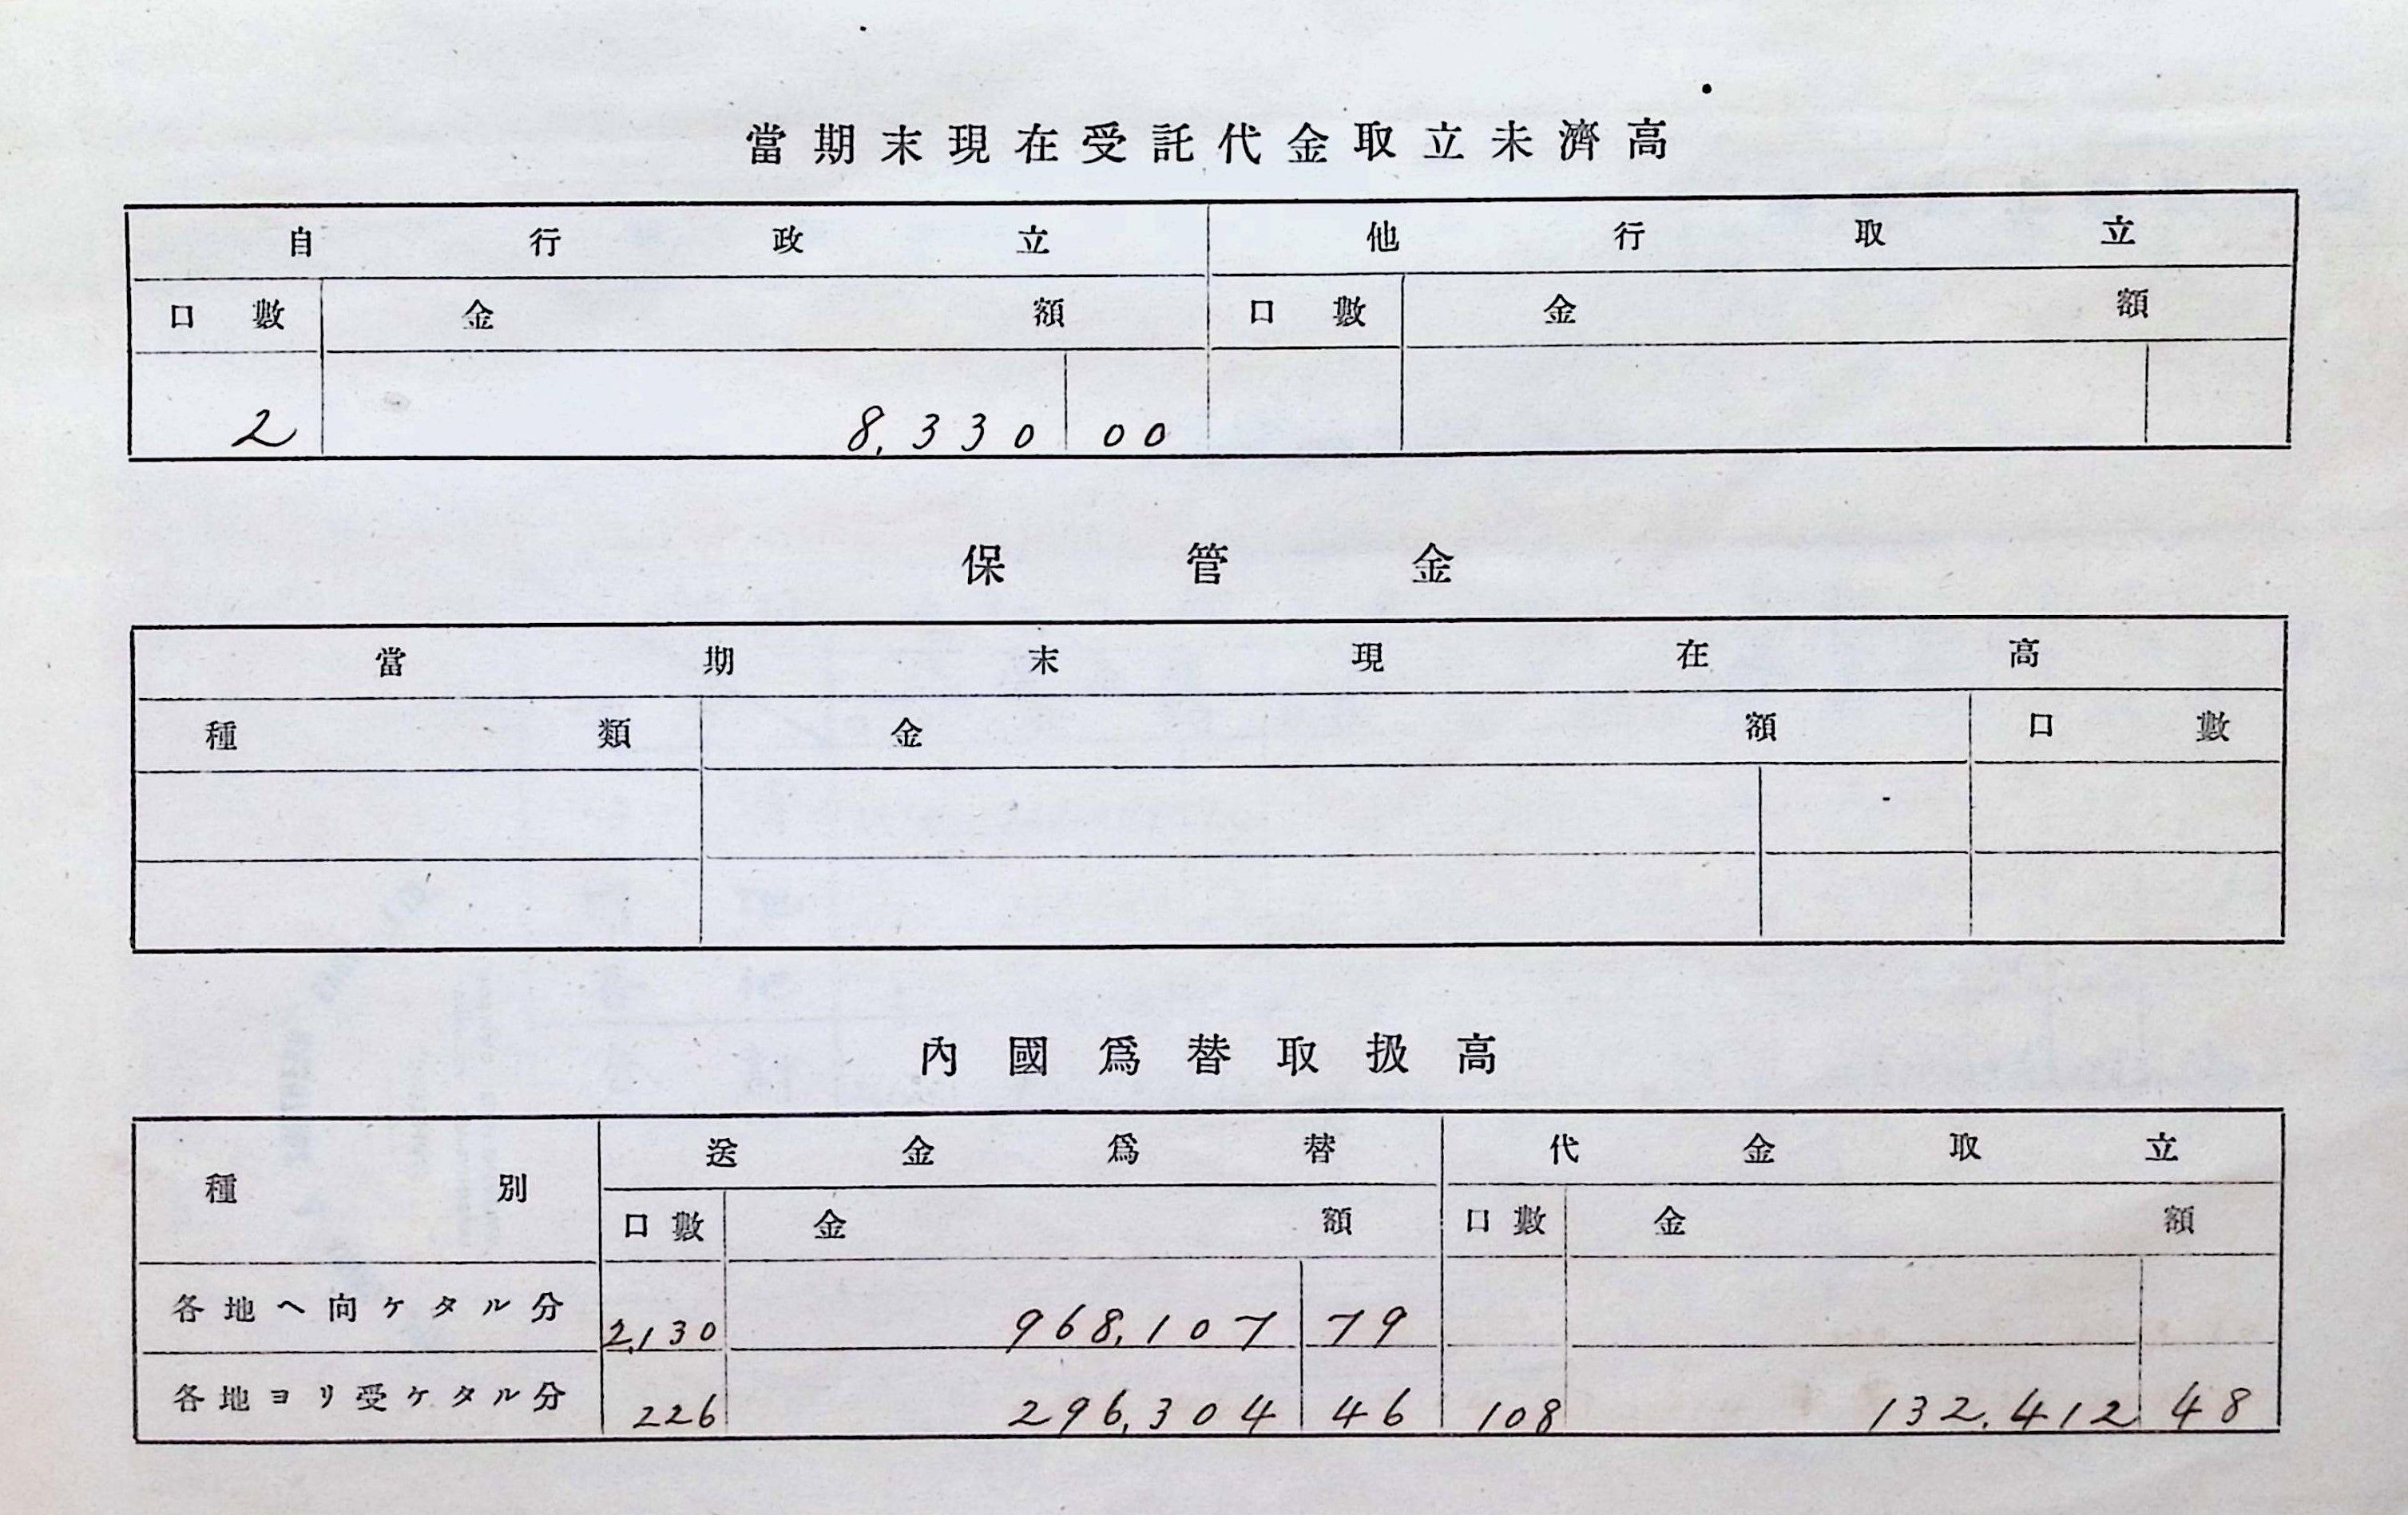 當期末現在受託代金取立未濟高
自行政立 他行取立
口數 金額 口數 金額
2 8,330 00
保管金
當期末現在高
種類 金額 口數
內國爲替取扱高
種別 送金爲替 代金取立
口數 金額 口數 金額
各地ヘ向ケタル分 2,130 968,107 79
各地ヨリ受ケタル分 226 296,304 46 108 132,412 48